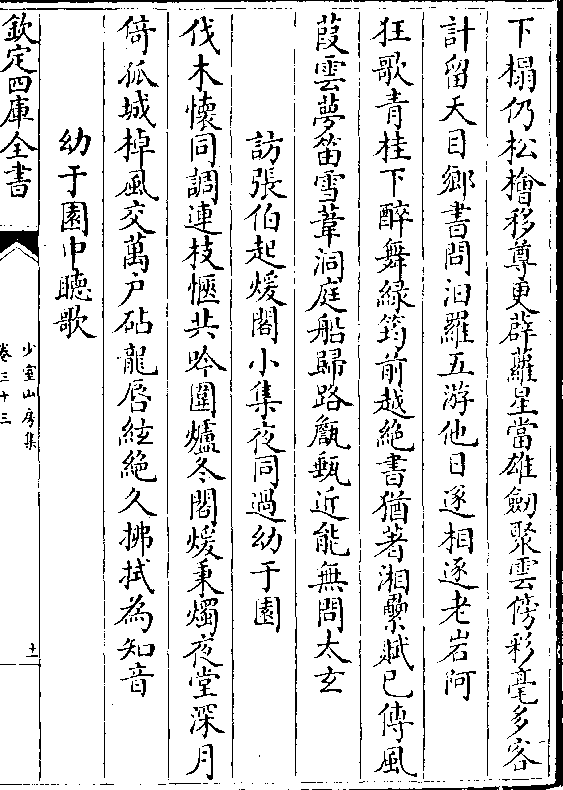 下榻仍松檜移尊更薜蘿星當雄劒聚雲傍彩毫多客
計留天目鄉書問汨羅五游他日遂相逐老岩阿
狂歌青桂下醉舞緑筠前越絶書猶著湘纍賦已傳風
葭雲夢笛雪葦洞庭船歸路甗甄近能無問太玄
訪張伯起煖閣小集夜同過幼于園
伐木懷同調連枝愜共吟圍爐冬閣煖秉燭夜堂深月
倚孤城掉風交萬户砧龍唇絃絶久拂拭為知音
幼于園中聽歌
欽定四庫全書
少室山房集
卷三十三
十一